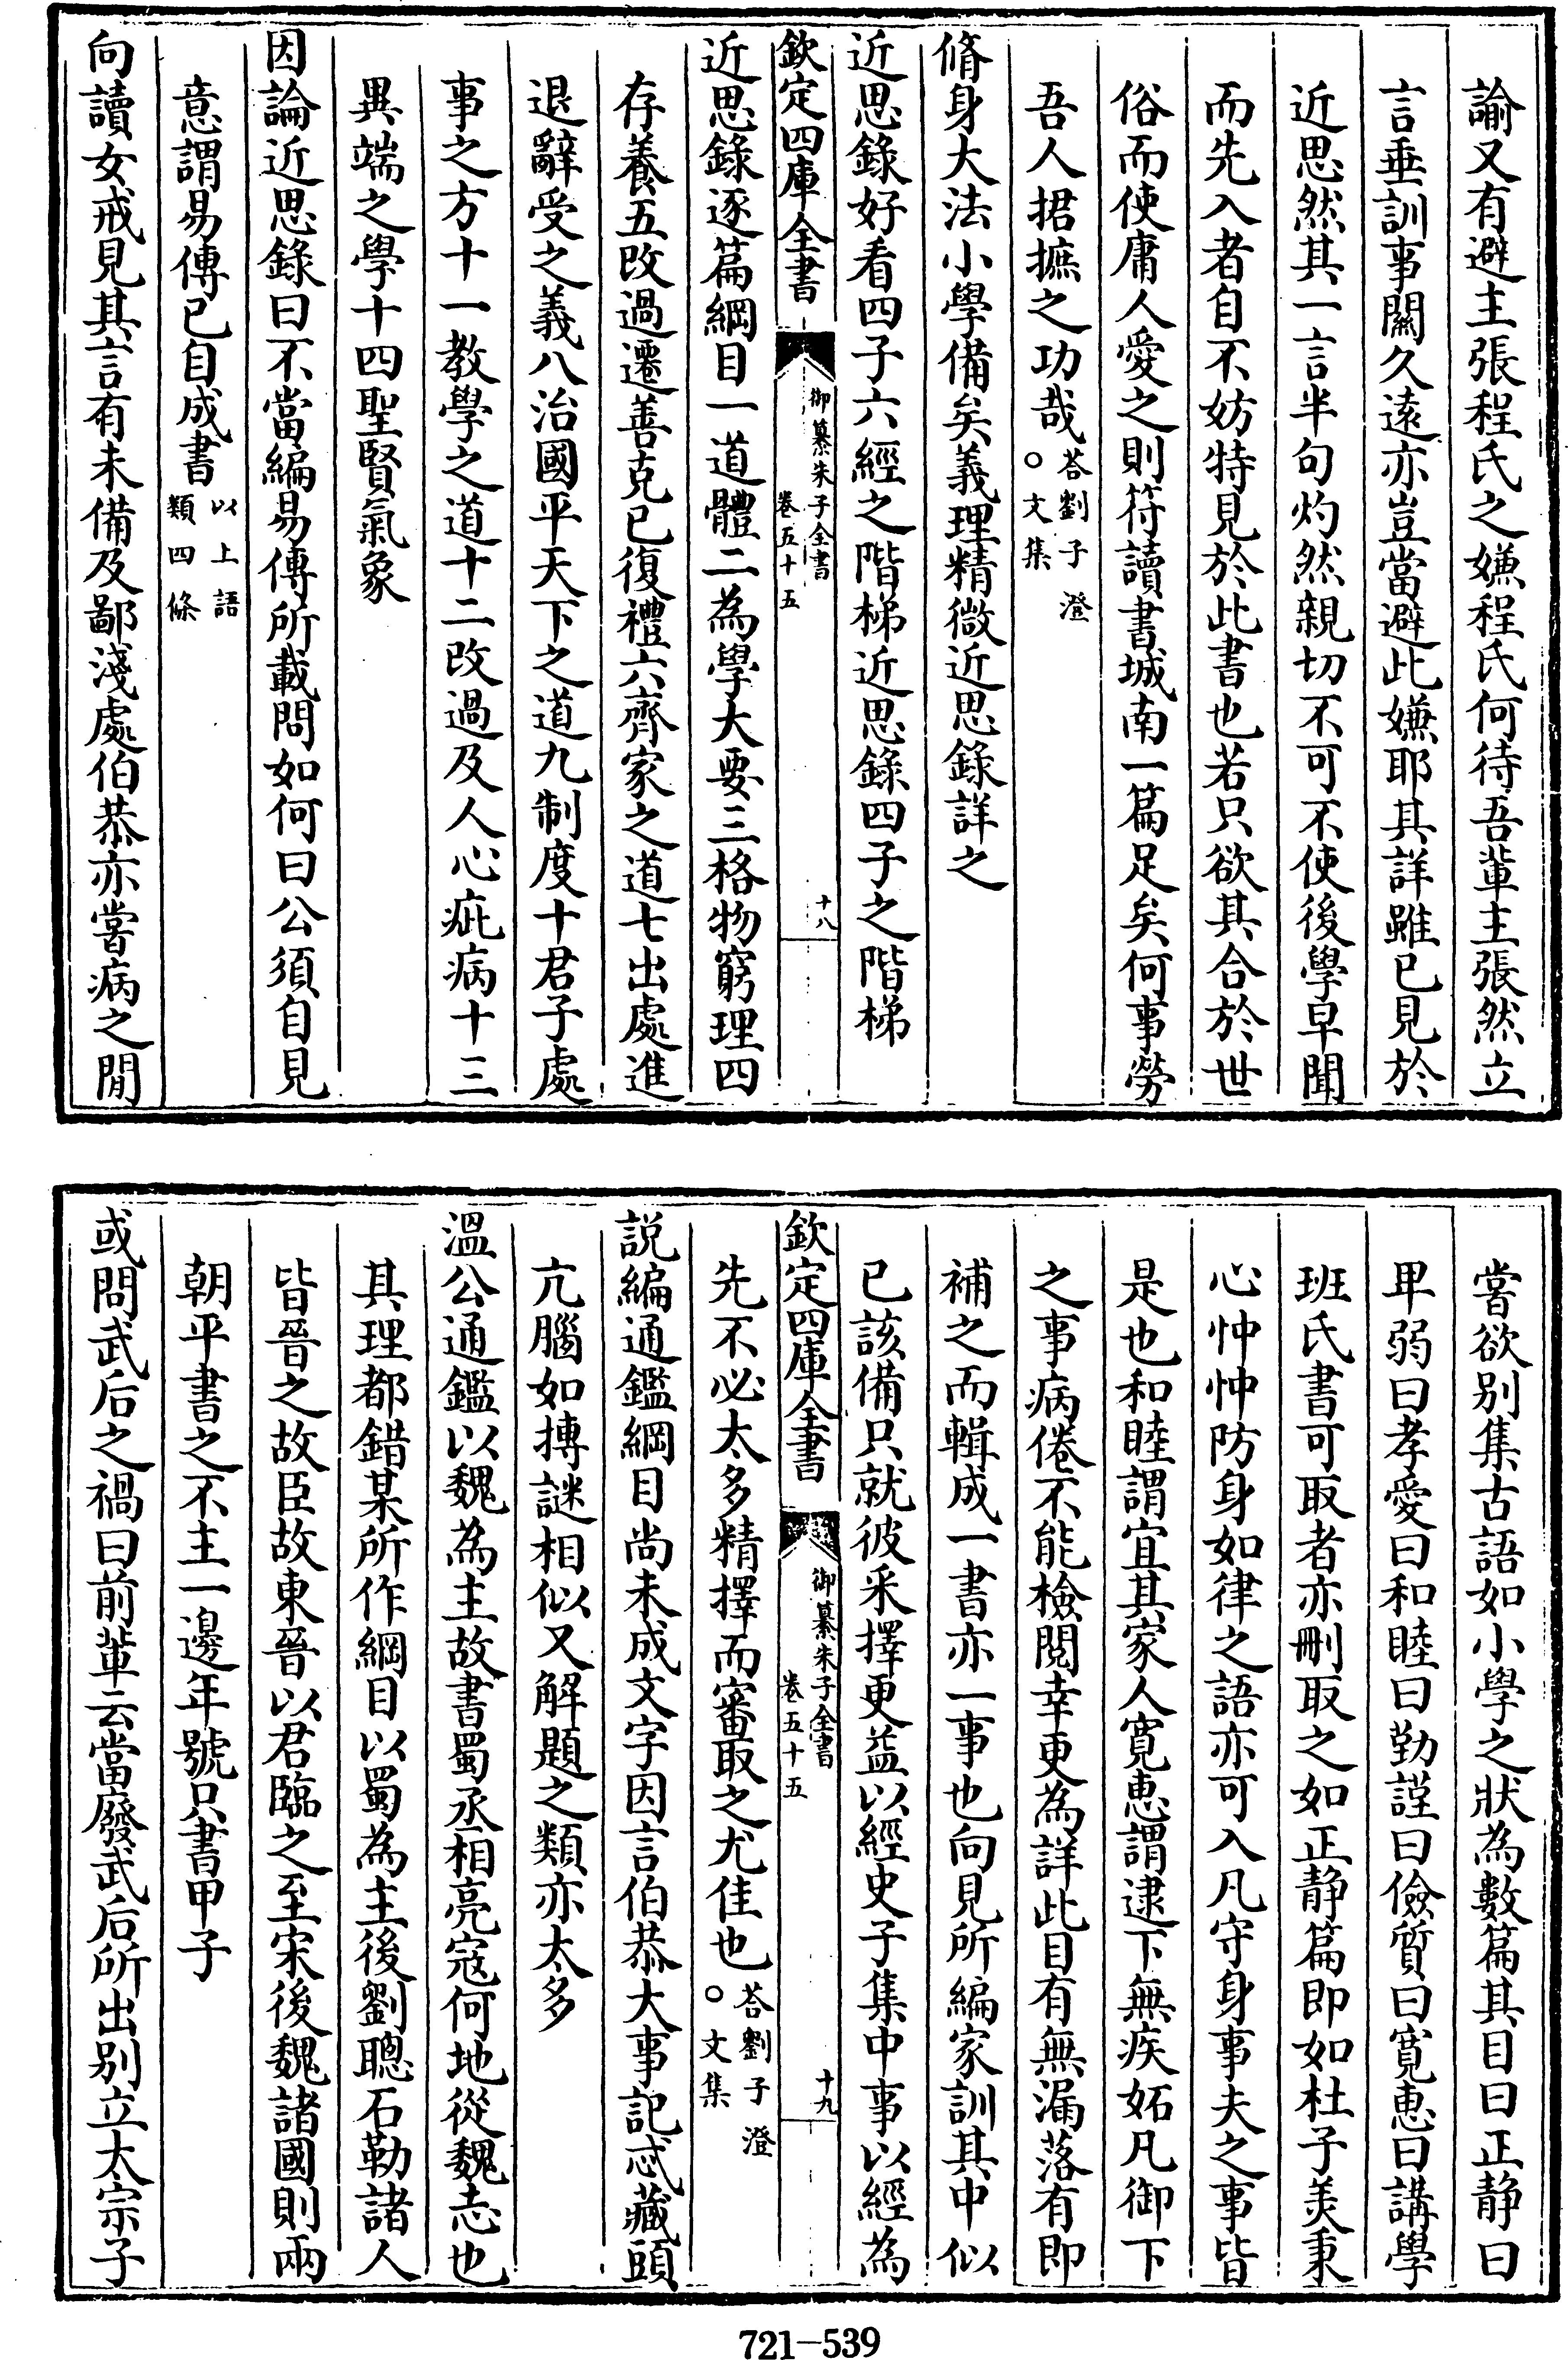 諭又有避主張程氏之嫌程氏何待吾輩主張然立
言垂訓事關久遠亦豈當避此嫌耶其詳雖已見於
近思然其一言半句灼然親切不可不使後學早聞
而先入者自不妨特見於此書也若只欲其合於世
俗而使庸人愛之則符讀書城南一篇足矣何事勞
吾人捃摭之功哉答劉子澄○文集
脩身大法小學備矣義理精微近思錄詳之
近思錄好看四子六經之階梯近思錄四子之階梯
欽定四庫全書 御纂朱子全書 卷五十五 十八
近思錄逐篇綱目一道體二為學大要三格物窮理四
存養五改過遷善克己復禮六齊家之道七出處進
退辭受之義八治國平天下之道九制度十君子處
事之方十一教學之道十二改過及人心疵病十三
異端之學十四聖賢氣象
因論近思錄曰不當編易傳所載問如何曰公須自見
意謂易傳已自成書以上語類四條
向讀女戒見其言有未備及鄙淺處伯恭亦嘗病之閒
嘗欲别集古語如小學之狀為數篇其目曰正静曰
卑弱曰孝愛曰和睦曰勤謹曰儉質曰寛惠曰講學
班氏書可取者亦刪取之如正静篇即如杜子美秉
心忡忡防身如律之語亦可入凡守身事夫之事皆
是也和睦謂宜其家人寛惠謂逮下無疾妬凡御下
之事病倦不能檢閱幸更為詳此目有無漏落有即
補之而輯成一書亦一事也向見所編家訓其中似
已該備只就彼采擇更益以經史子集中事以經為
欽定四庫全書 御纂朱子全書 卷五十五 十九
先不必太多精擇而審取之尤佳也答劉子澄○文集
説編通鑑綱目尚未成文字因言伯恭大事記忒藏頭
亢腦如摶謎相似又解題之類亦太多
溫公通鑑以魏為主故書蜀丞相亮寇何地從魏志也
其理都錯某所作綱目以蜀為主後劉聰石勒諸人
皆晉之故臣故東晉以君臨之至宋後魏諸國則兩
朝平書之不主一邊年號只書甲子
或問武后之禍曰前輩云當廢武后所出别立太宗子
721-539